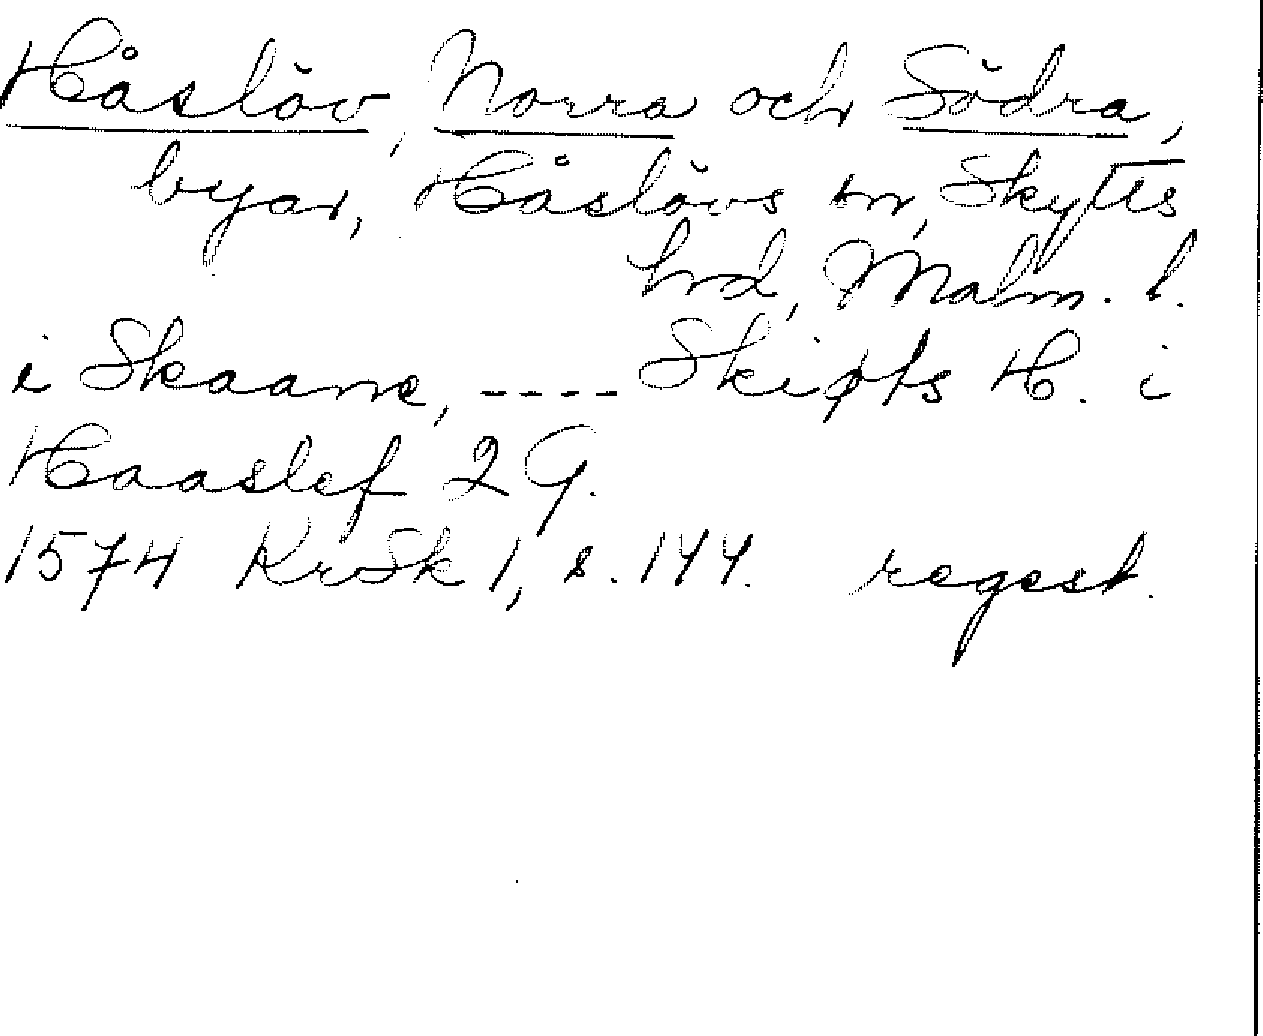 Håslöv, Norra och Södra,
byar, Håslövs sn, Skytts
hrd, Malm. l.
i Skaane, ---- Skipts H. i
Haaslef 2 G.
1574 KrSk 1, s. 144. regest.